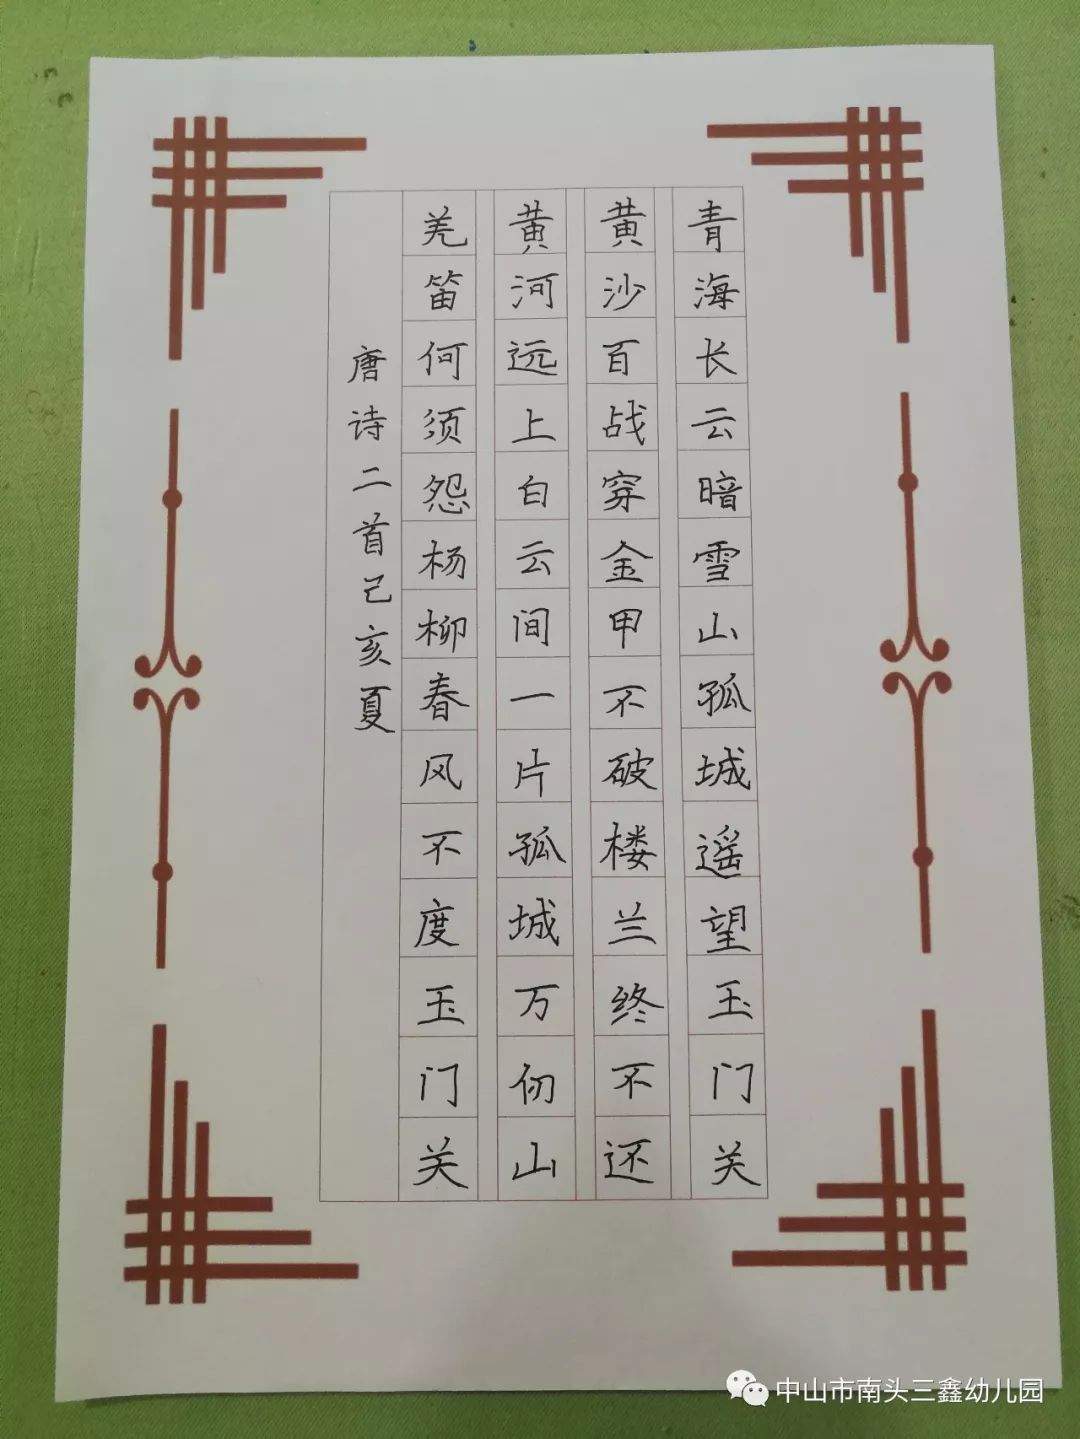 青海长云暗雪山孤城遥望玉门关
黄沙百战穿金甲不破楼兰终不还
黄河远上白云间一片孤城万仞山
羌笛何须怨杨柳春风不度玉门关
唐诗二首己亥夏
中山市南头三鑫幼儿园